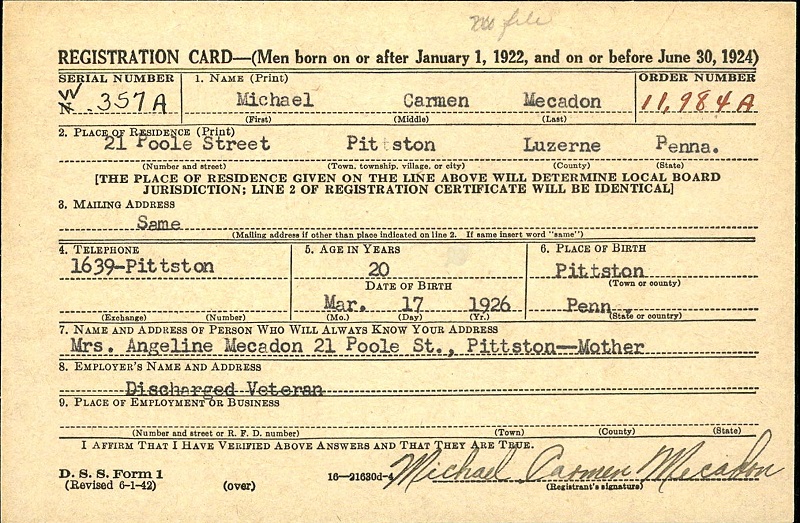 file
REGISTRATION CARD—(Men born on or after January 1, 1922, and on or before June 30, 1924)
SERIAL NUMBER 1. NAME (Print) ORDER NUMBER
W
N 357A Michael Carmen Mecadon 11,984 A
(First) (Middle) (Last)
2. PLACE OF RESIDENCE (Print)
21 Poole Street Pittston Luzerne Penna.
(Number and street) (Town, township, village, or city) (County) (State)
[THE PLACE OF RESIDENCE GIVEN ON THE LINE ABOVE WILL DETERMINE LOCAL BOARD
JURISDICTION; LINE 2 OF REGISTRATION CERTIFICATE WILL BE IDENTICAL]
3. MAILING ADDRESS
Same
(Mailing address if other than place indicated on line 2. If same insert word "same")
4. TELEPHONE 5. AGE IN YEARS 6. PLACE OF BIRTH
1639-Pittston 20 Pittston
DATE OF BIRTH (Town or county)
Mar. 17 1926 Penn.
(Exchange) (Number) (Mo.) (Day) (Yr.) (State or country)
7. NAME AND ADDRESS OF PERSON WHO WILL ALWAYS KNOW YOUR ADDRESS
Mrs. Angeline Mecadon 21 Poole St., Pittston--Mother
8. EMPLOYER'S NAME AND ADDRESS
Discharged Veteran
9. PLACE OF EMPLOYMENT OR BUSINESS
(Number and street or R. F. D. number) (Town) (County) (State)
I AFFIRM THAT I HAVE VERIFIED ABOVE ANSWERS AND THAT THEY ARE TRUE.
D. S. S. Form 1
(Revised 6-1-42) (over) 16—21630d-4 Michael Carmen Mecadon
(Registrant's signature)